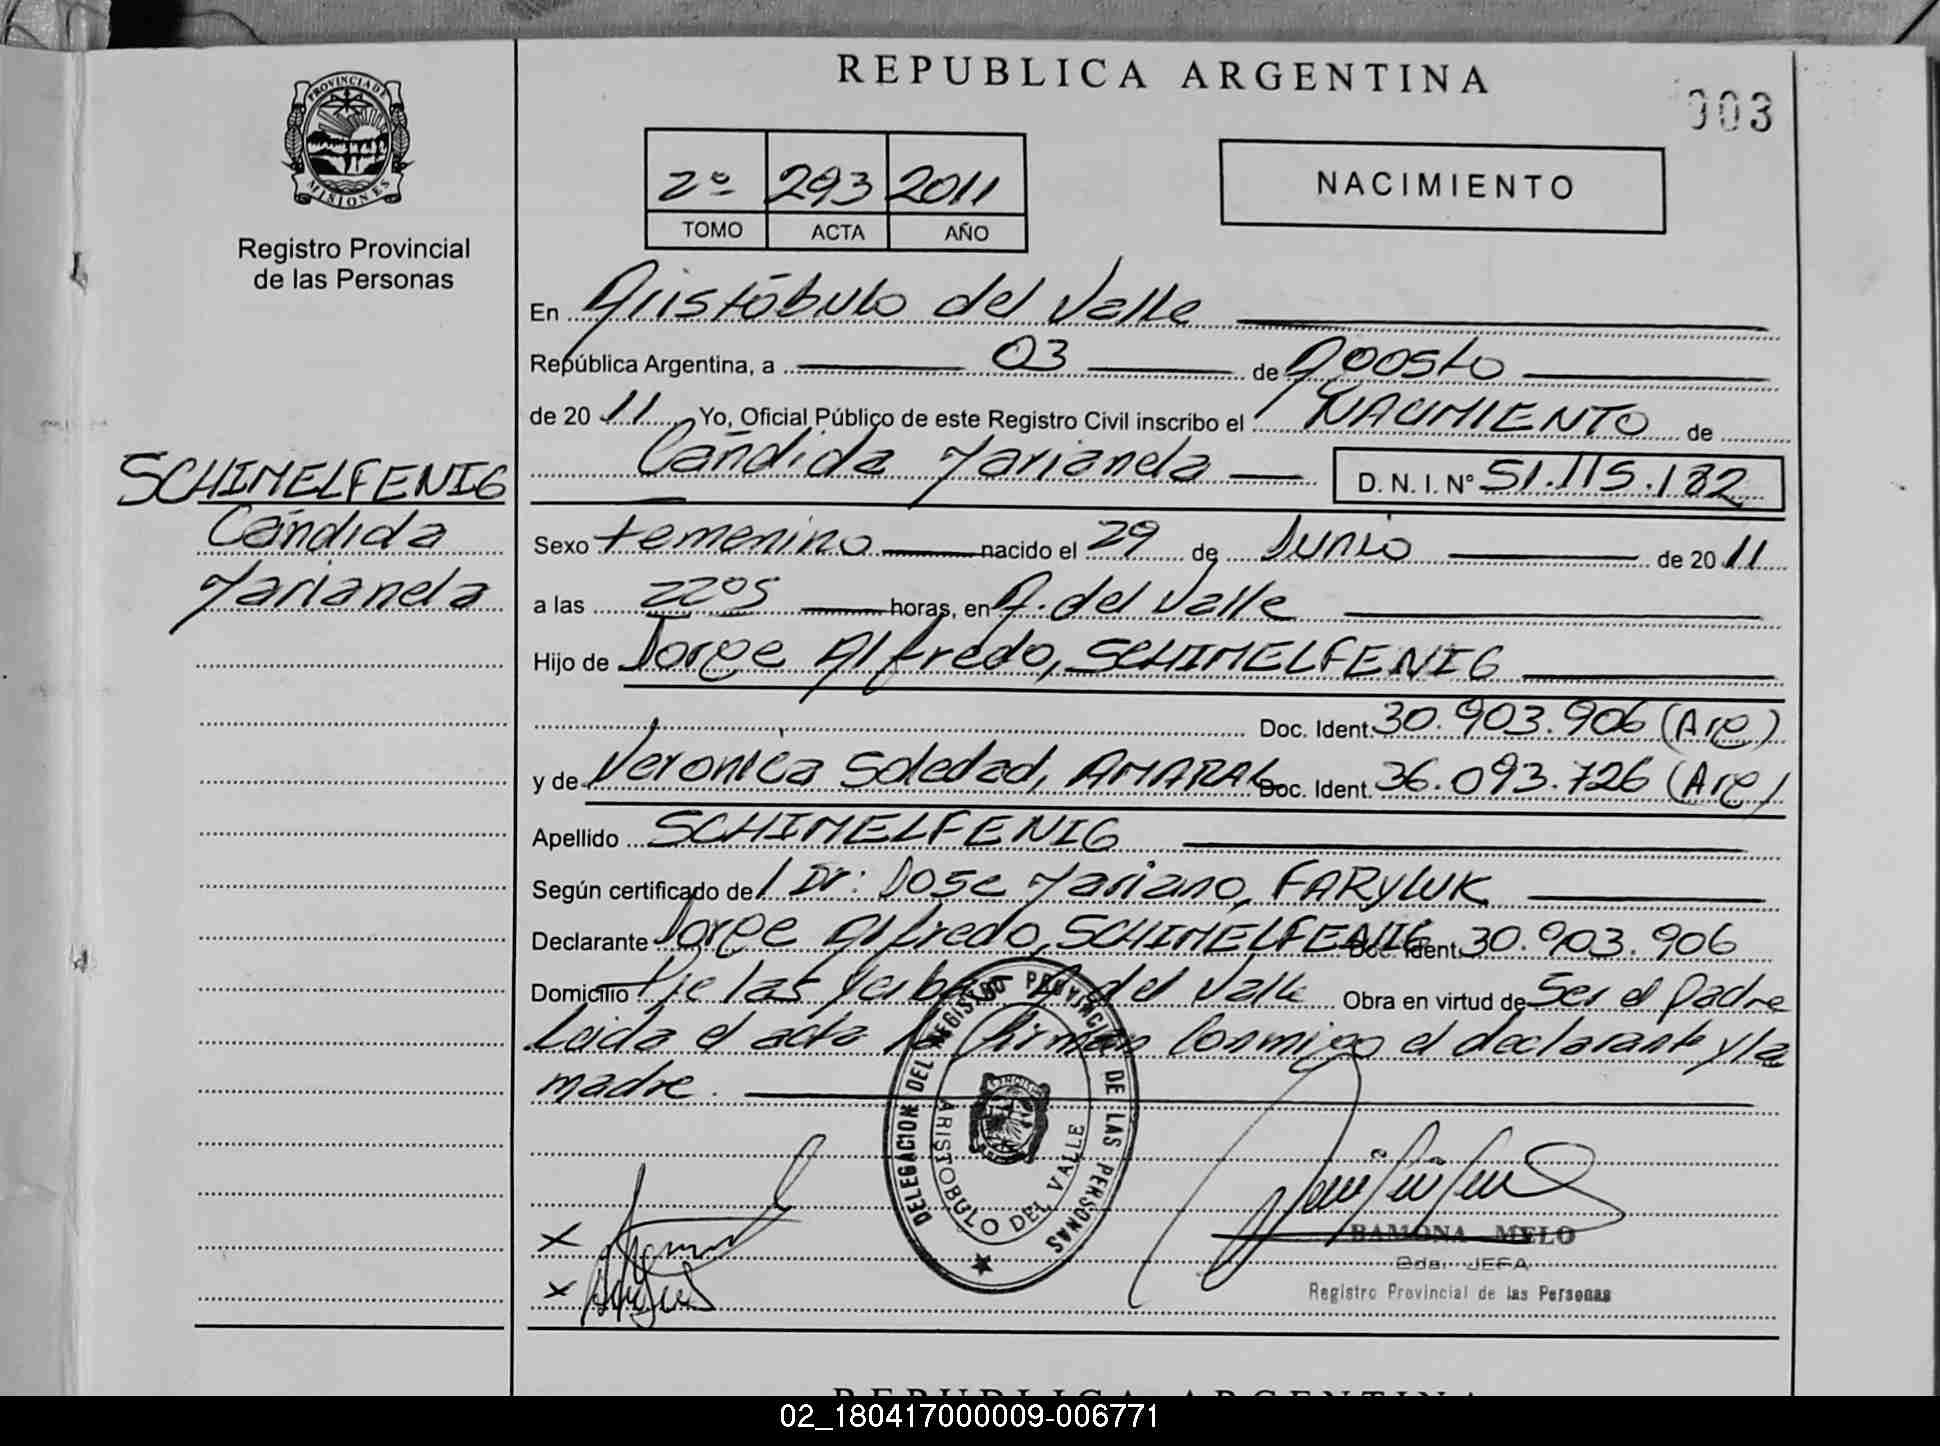 REPUBLICA ARGENTINA
903
PROVINCIA DE MISIONES
Registro Provincial
de las Personas
2º 293 2011
TOMO ACTA AÑO
NACIMIENTO
En Aristóbulo del Valle
República Argentina, a 03 de Agosto
de 2011 Yo, Oficial Público de este Registro Civil inscribo el NACIMIENTO de
Cándida Marianela D.N.I. Nº 51.115.182
SCHIMELFENIG
Cándida
Marianela
Sexo femenino nacido el 29 de Junio de 2011
a las 22º5 horas, en A. del Valle
Hijo de Jorge Alfredo, SCHIMELFENIG
Doc. Ident. 30.903.906 (Arg)
y de Verónica Soledad, AMARAL Doc. Ident. 36.093.726 (Arg)
Apellido SCHIMELFENIG
Según certificado de / Dr: Jose Mariano, FARYLUK
Declarante Jorge Alfredo, SCHIMELFENIG Doc. Ident. 30.903.906
Domicilio Pje las Yerbas A. del Valle Obra en virtud de Ser el Padre
Leida el acta la firman Conmigo el declarante y la
madre.
DELEGACION DEL REGISTRO PROVINCIAL DE LAS PERSONAS
ARISTOBULO DEL VALLE
RAMONA MELO
2da. JEFA
Registro Provincial de las Personas
REPUBLICA ARGENTINA
02_180417000009-006771